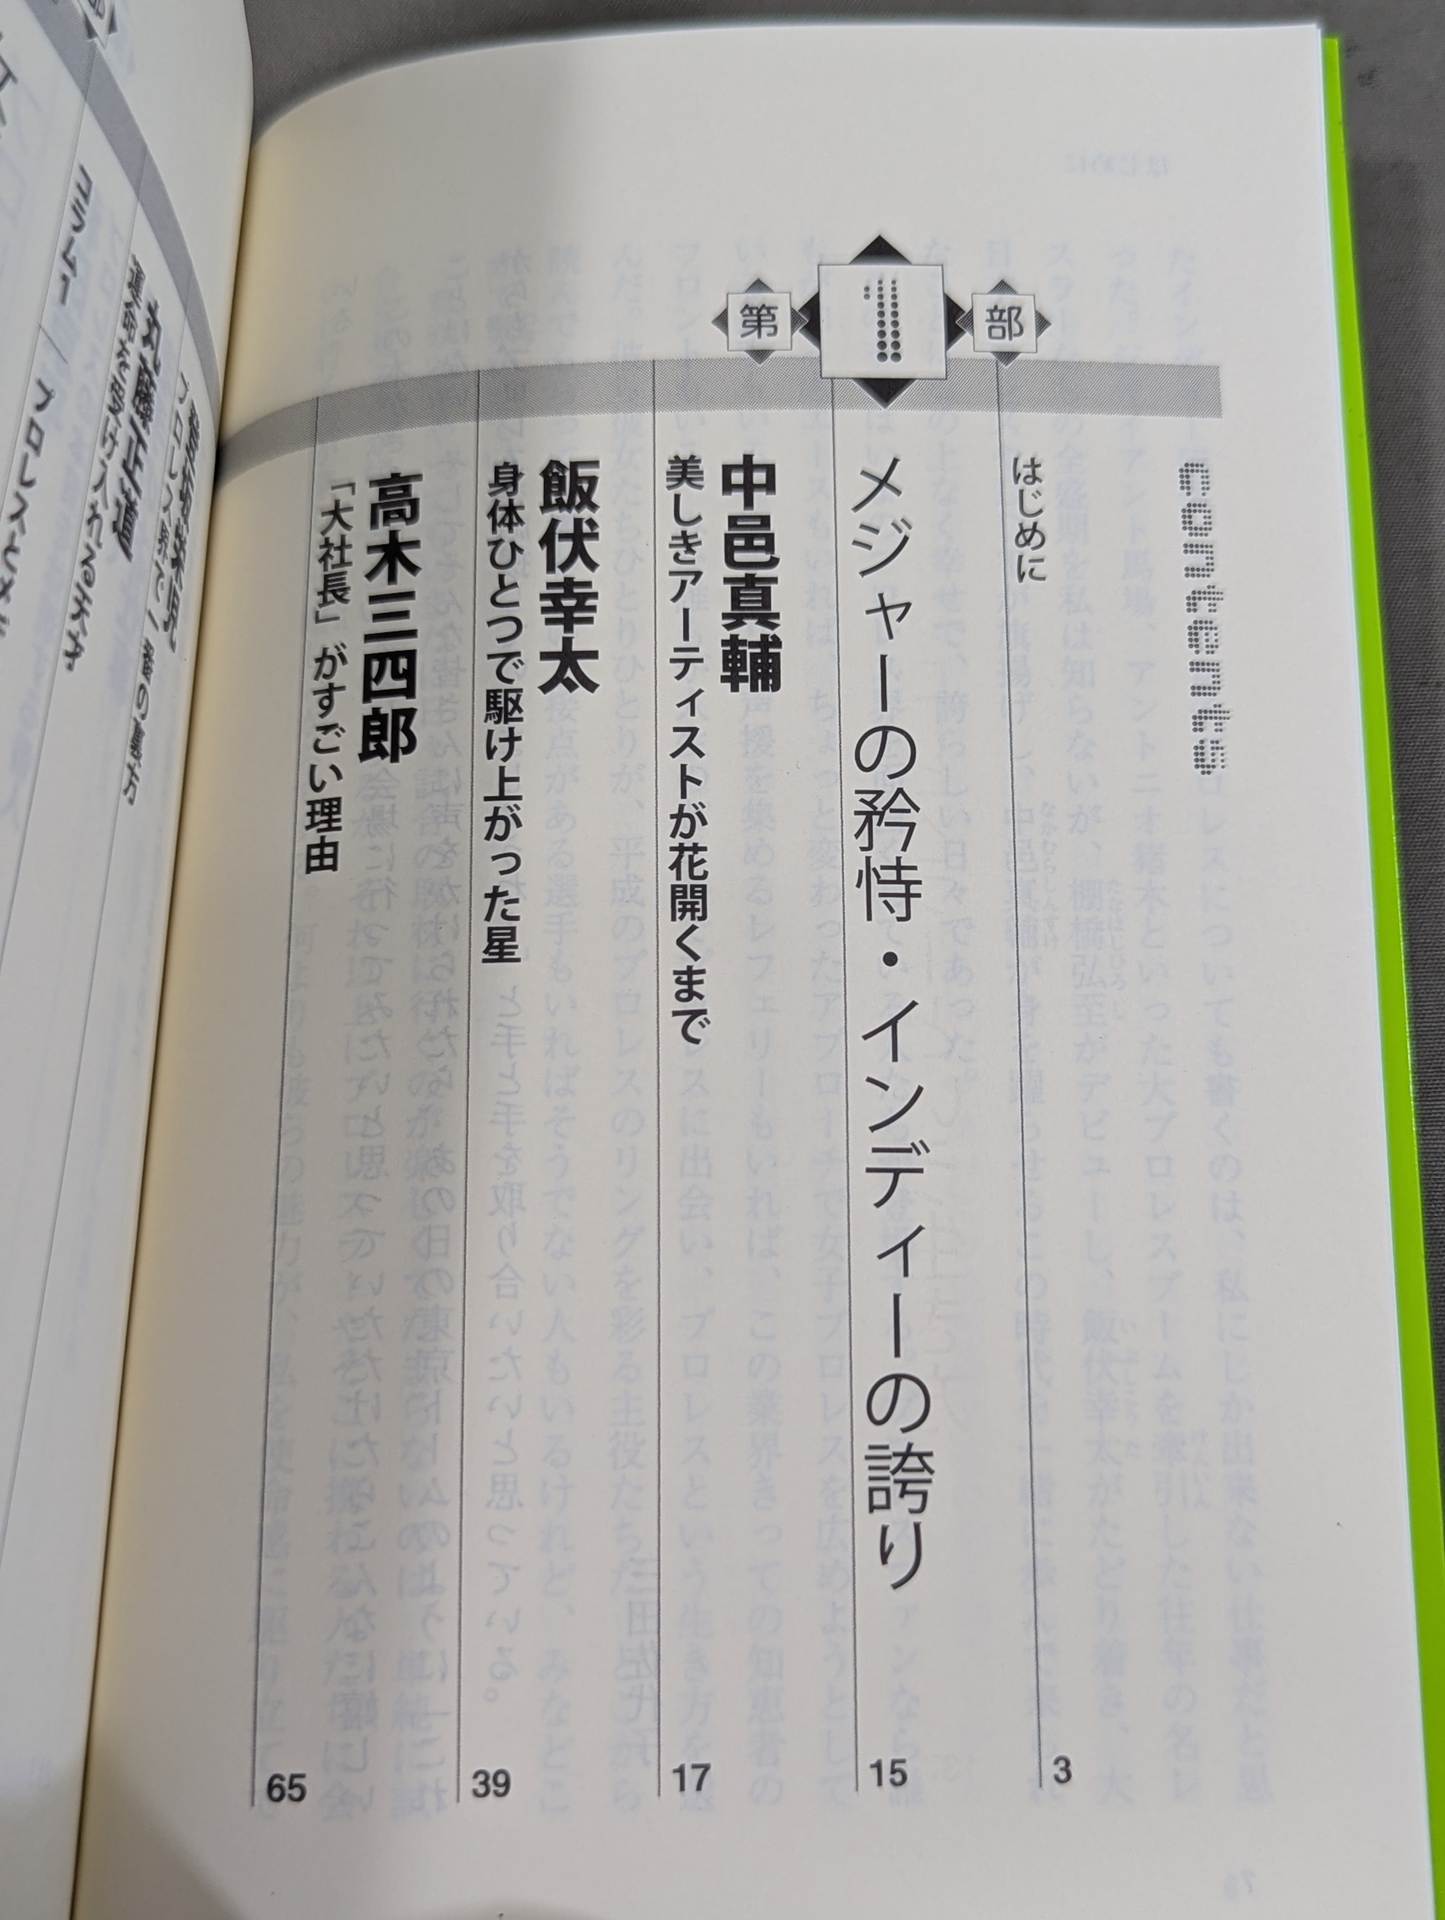 contents
はじめに 3
第1部
メジャーの矜恃・インディーの誇り 15
中邑真輔
美しきアーティストが花開くまで 17
飯伏幸太
身体ひとつで駆け上がった星 39
高木三四郎
「大社長」がすごい理由 65
丸藤正道
運命を受け入れる天才
コラム1／プロレスと